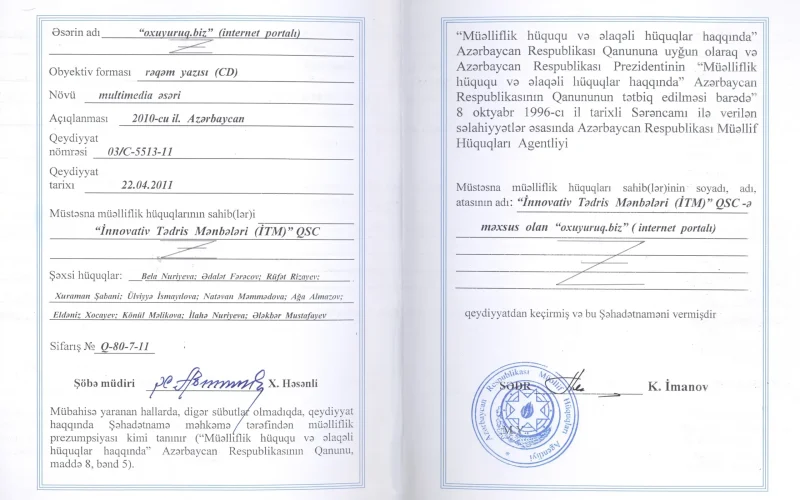 Əsərin adı “oxuyuruq.biz” (internet portalı)
Obyektiv forması rəqəm yazısı (CD)
Növü multimedia əsəri
Açıqlanması 2010-cu il. Azərbaycan
Qeydiyyat
nömrəsi 03/C-5513-11
Qeydiyyat
tarixi 22.04.2011
Müstəsna müəlliflik hüquqlarının sahib(lər)i
“İnnovativ Tədris Mənbələri (İTM)” QSC
Şəxsi hüquqlar: Bela Nuriyeva; Ədalət Fərəcov; Rüfət Rizayev;
Xuraman Şabani; Ülviyyə İsmayılova; Natəvan Məmmədova; Ağa Almazov;
Eldəniz Xocayev; Könül Məlikova; İlahə Nuriyeva; Ələkbər Mustafayev
Sifariş № Q-80-7-11
Şöbə müdiri X. Həsənli
Mübahisə yaranan hallarda, digər sübutlar olmadıqda, qeydiyyat
haqqında Şəhadətnamə məhkəmə tərəfindən müəlliflik
prezumpsiyası kimi tanınır (“Müəlliflik hüququ və əlaqəli
hüquqlar haqqında” Azərbaycan Respublikasının Qanunu,
maddə 8, bənd 5).
“Müəlliflik hüququ və əlaqəli hüquqlar haqqında”
Azərbaycan Respublikası Qanununa uyğun olaraq və
Azərbaycan Respublikası Prezidentinin “Müəlliflik
hüququ və əlaqəli hüquqlar haqqında” Azərbaycan
Respublikasının Qanununun tətbiq edilməsi barədə”
8 oktyabr 1996-cı il tarixli Sərəncamı ilə verilən
səlahiyyətlər əsasında Azərbaycan Respublikası Müəllif
Hüquqları Agentliyi
Müstəsna müəlliflik hüquqları sahib(lər)inin soyadı, adı,
atasının adı: “İnnovativ Tədris Mənbələri (İTM)” QSC -ə
məxsus olan “oxuyuruq.biz” ( internet portalı)
qeydiyyatdan keçirmiş və bu Şəhadətnaməni vermişdir
SƏDR K. İmanov
M.Y.
Azərbaycan Respublikası Müəllif Hüquqları Agentliyi